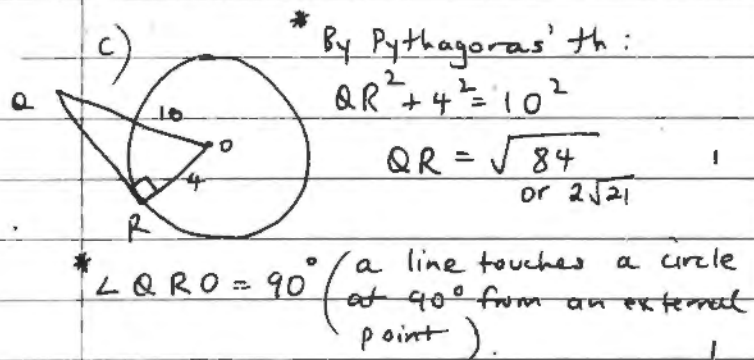 c)
* By Pythagoras' th :
Q
10
O
4
R
QR² + 4² = 10²
QR = √84 1
or 2√21
* ∠QRO = 90° (a line touches a circle
at 90° from an external
point). 1